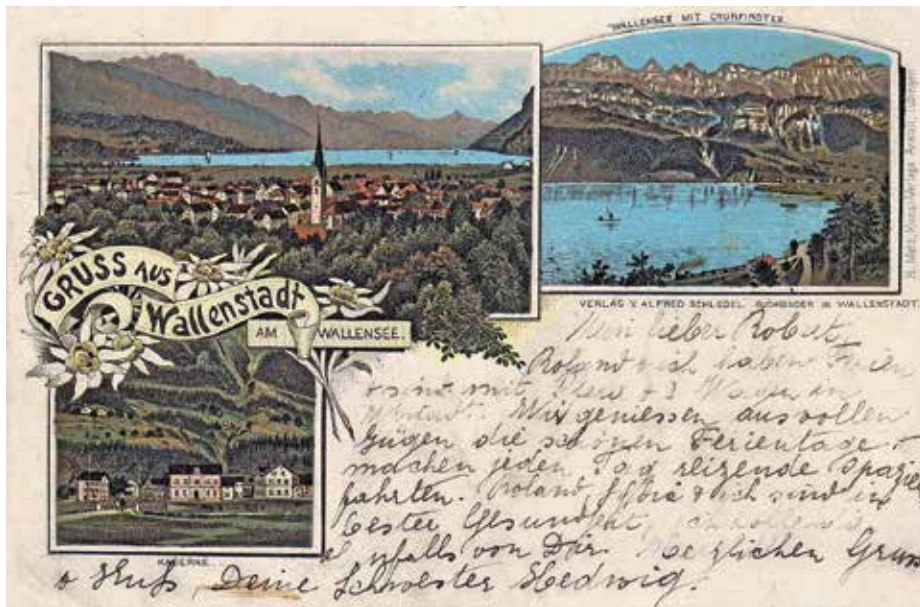 WALLENSEE MIT CHURFIRSTEN.
GRUSS AUS
Wallenstadt
AM WALLENSEE.
VERLAG V. ALFRED SCHLEGEL. BUCHBINDER IN WALLENSTADT.
KASERNE.
Mein lieber Robert,
Roland & ich haben Ferien
& sind mit
Wir geniessen aus vollen
Zügen die schönen Ferientage &
machen jeden Tag reizende Spazier
fahrten. Roland, & ich sind in
bester Gesundheit,
von Dir. Herzlichen Gruss
& Kuss, Deine Schwester Hedwig.